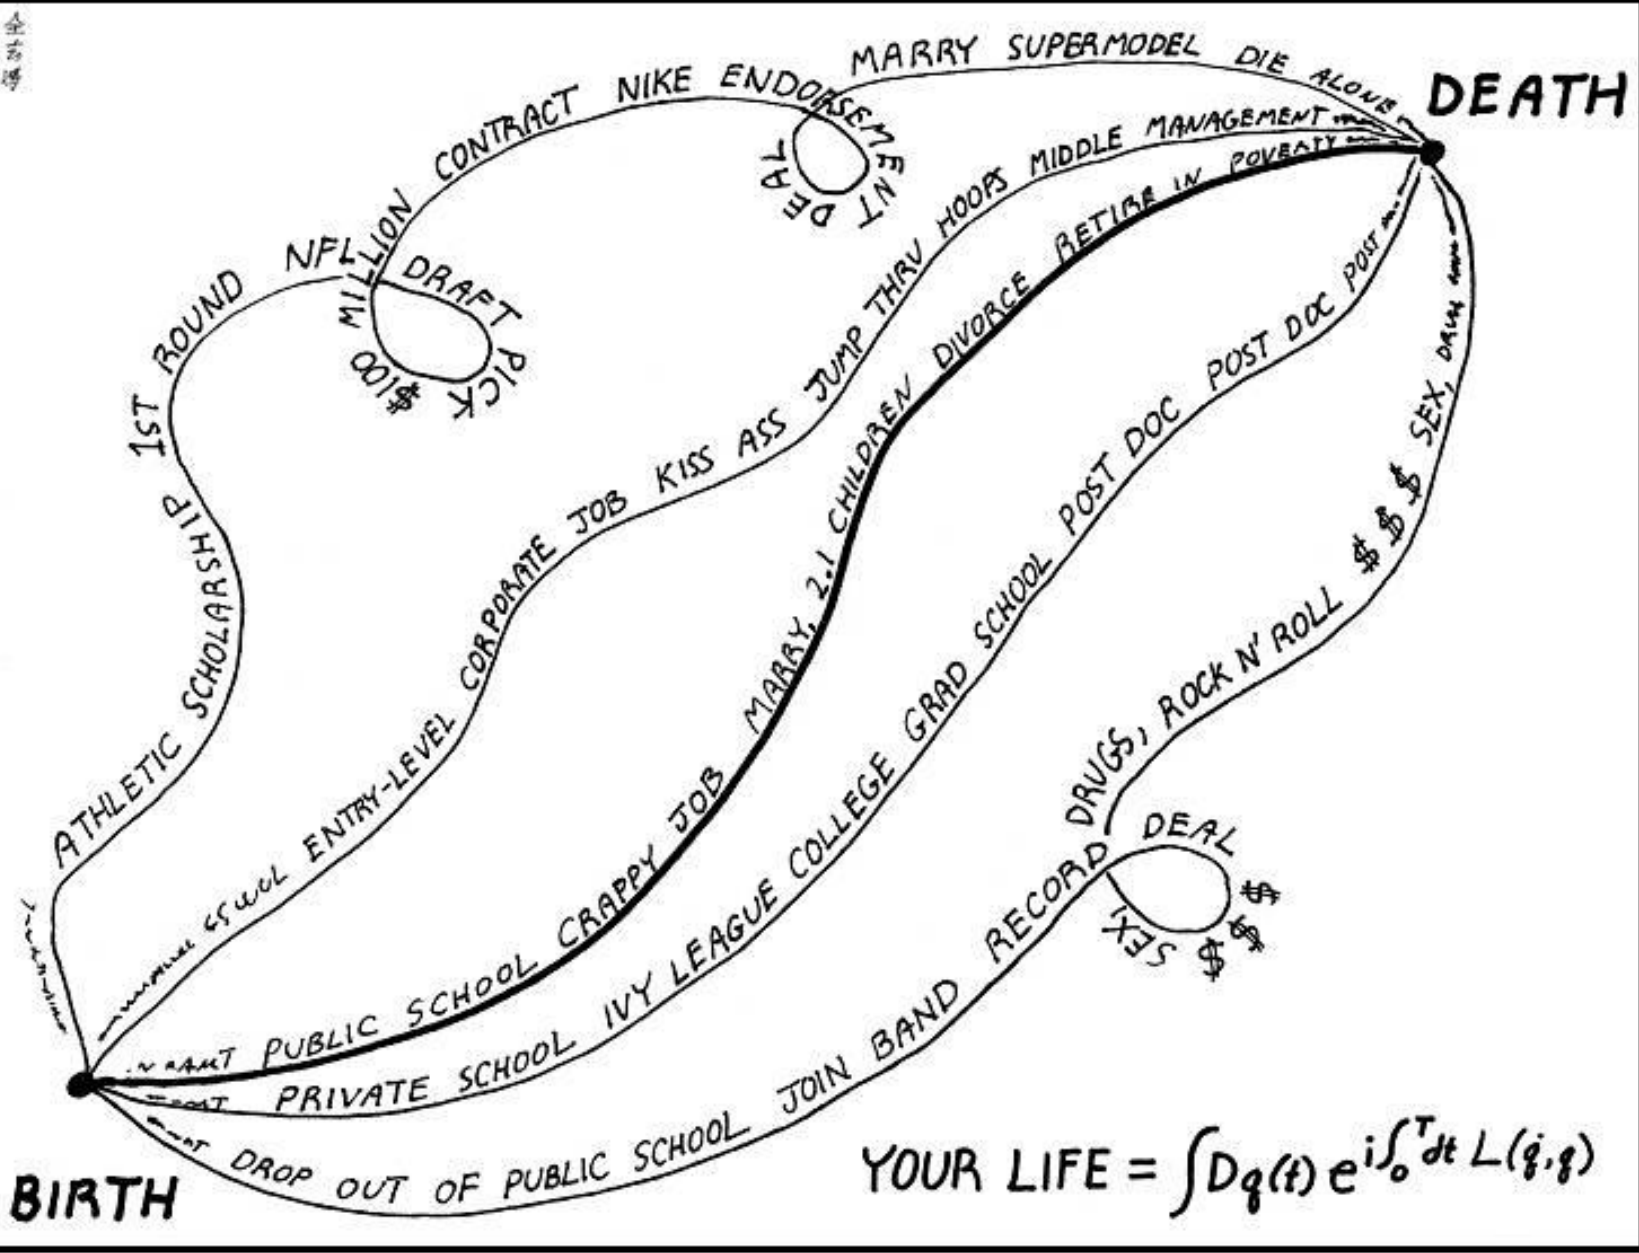 DEATH
ATHLETIC SCHOLARSHIP 1ST ROUND NFL DRAFT PICK $100 MILLION CONTRACT NIKE ENDORSEMENT DEAL MARRY SUPERMODEL DIE ALONE
ENTRY-LEVEL CORPORATE JOB KISS ASS JUMP THRU HOOPS MIDDLE MANAGEMENT
PUBLIC SCHOOL CRAPPY JOB MARRY, 2.1 CHILDREN DIVORCE RETIRE IN POVERTY
PRIVATE SCHOOL IVY LEAGUE COLLEGE GRAD SCHOOL POST DOC POST DOC POST
DROP OUT OF PUBLIC SCHOOL JOIN BAND RECORD DEAL $ $ $ SEX, DRUGS, ROCK N' ROLL $ $ $ SEX,
BIRTH
YOUR LIFE = ∫Dq(t) e^{i∫_0^T dt L(q̇,q)}